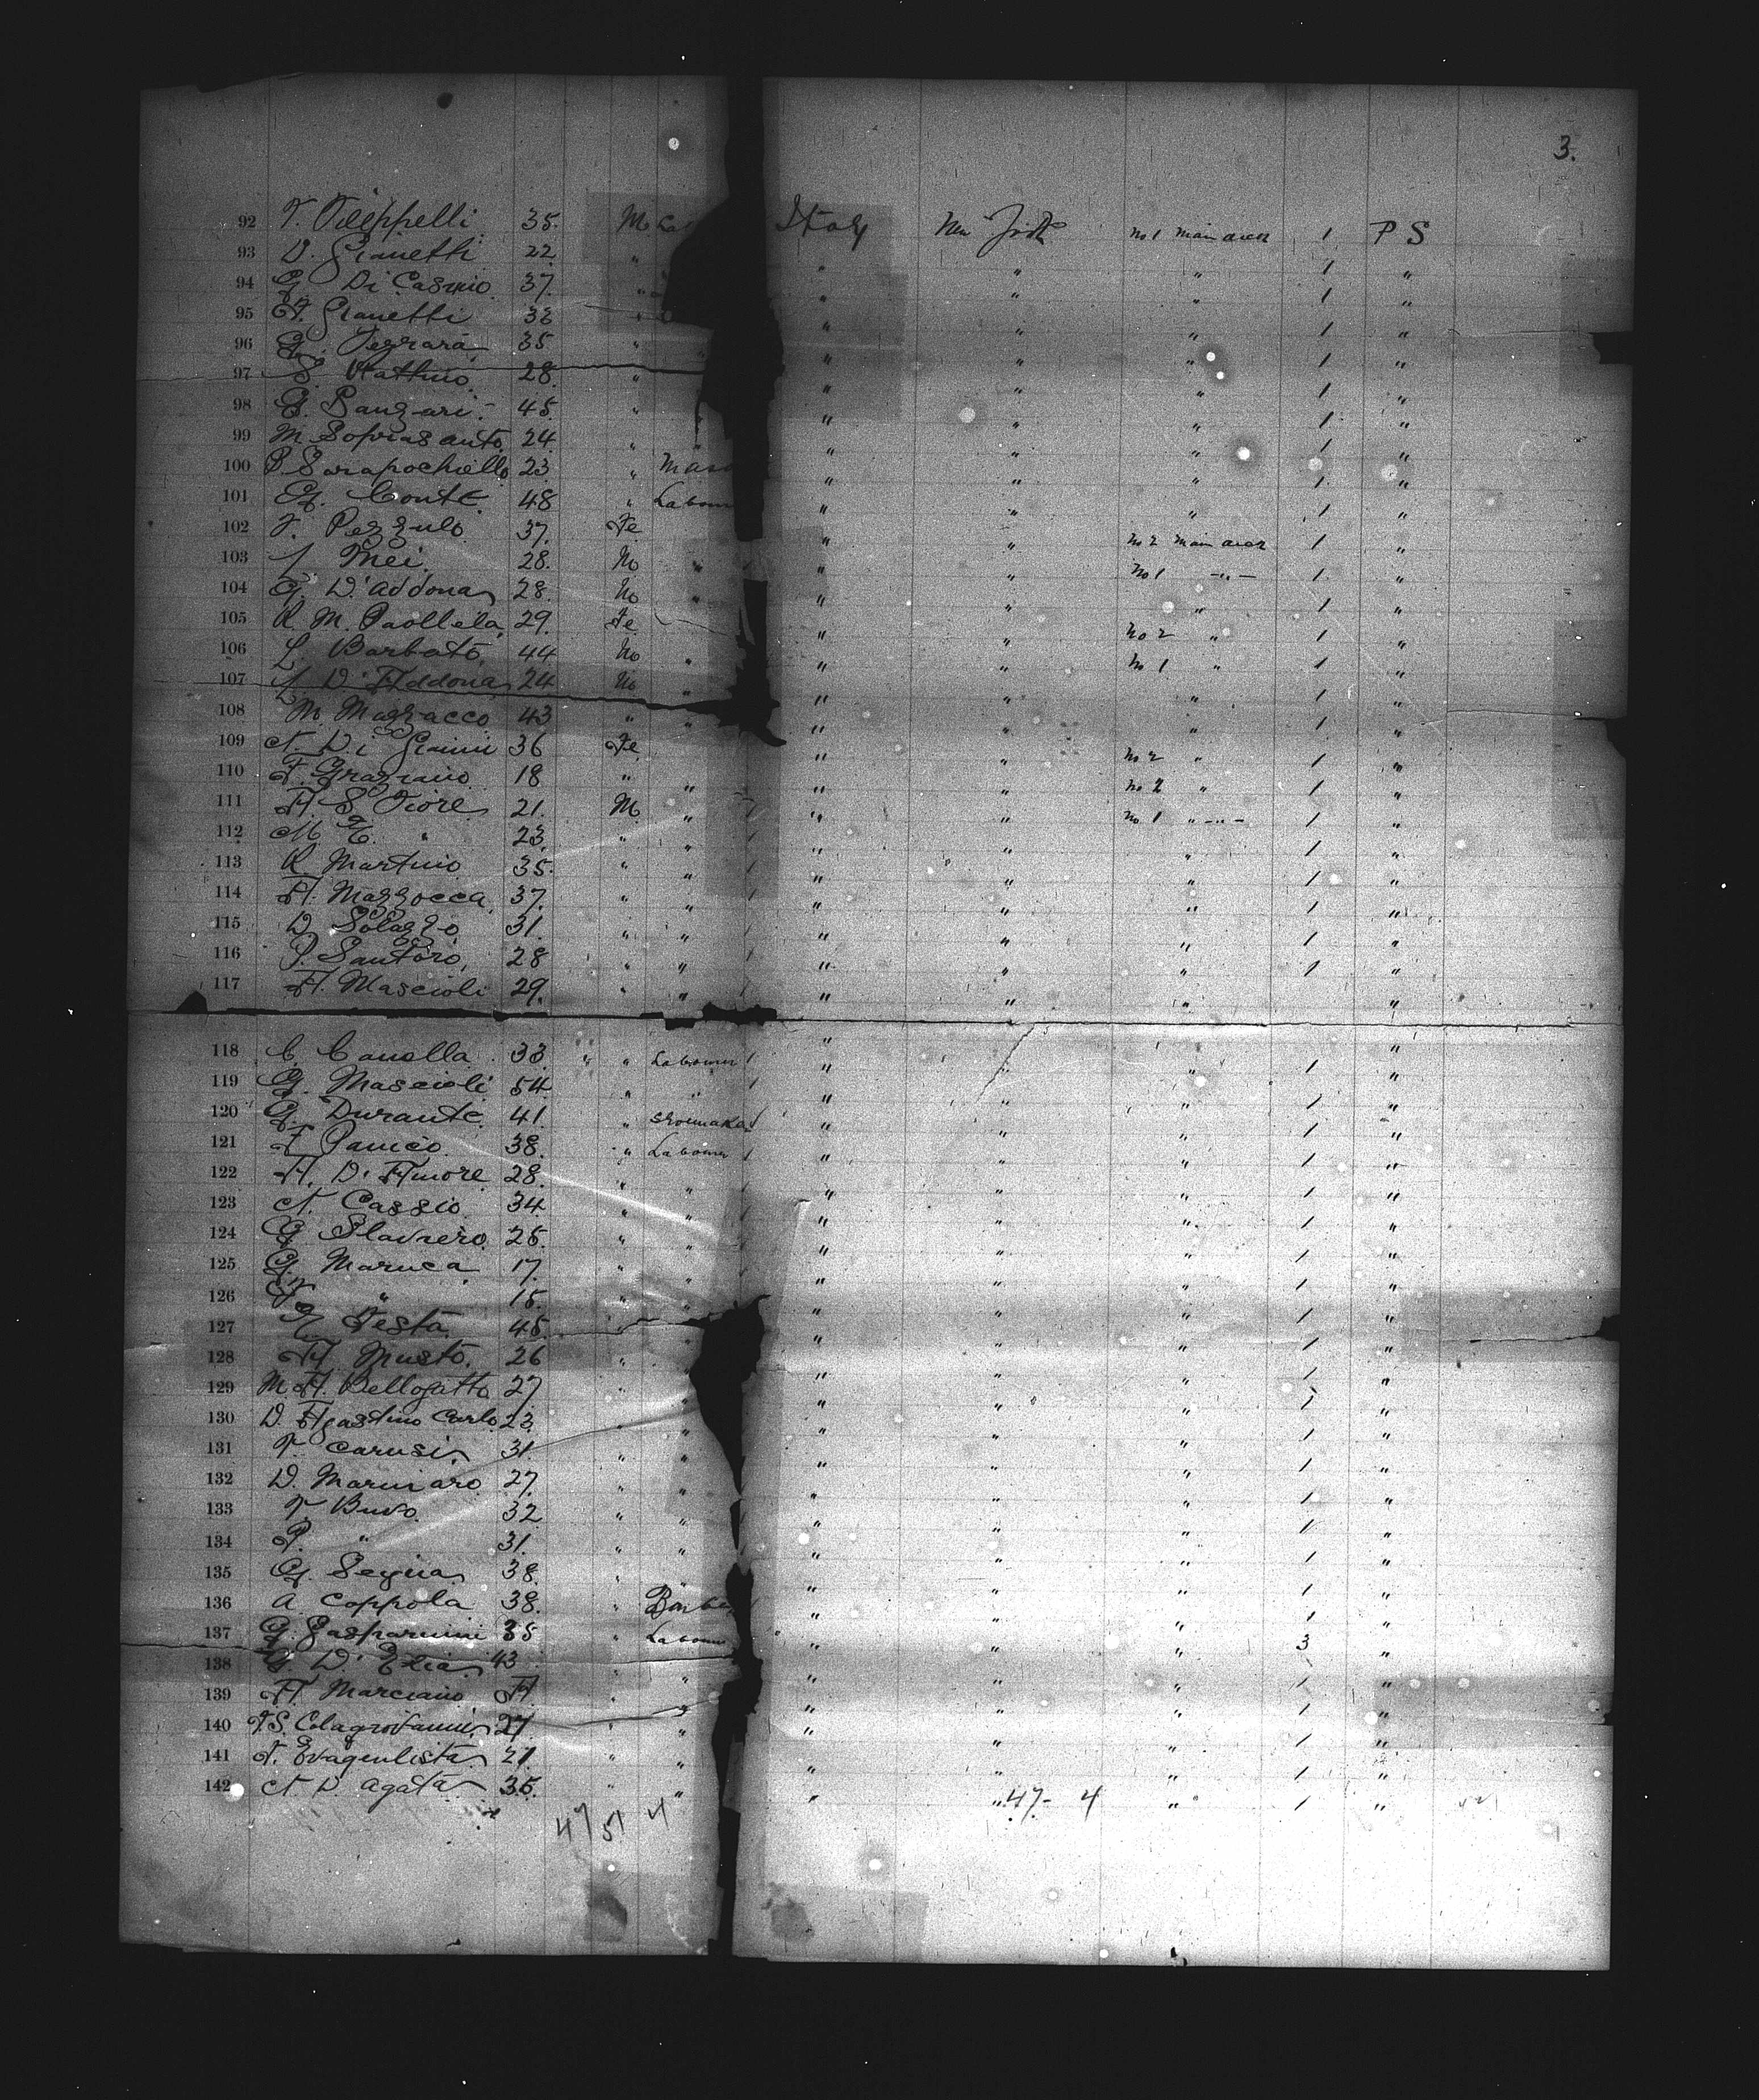 3.
92 F. Filippelli 35. M La Italy New York No 1 main deck 1 P S
93 D. Gianetti 22 " " " " 1 "
94 G Di Casmio 37. " " " " " 1 "
95 F. Gianetti 33 " " " " 1 "
96 G. Pegrara 35 " " " " " 1 "
97 S. Mattino 28. " " " " 1 "
98 G. Sanzari 45. " " " " 1 "
99 M. Soprasanto 24 " " " " " 1 "
100 P. Sarapochiello 23 " Maso " " " 1 "
101 G. Conte 48 " Labour " " " 1 "
102 F. Pezzulo 37. Fe " " No 2 main deck 1 "
103 f Mei. 28. M " " " No 1 -"- 1 "
104 G. D'addona 28. M " " " " 1 "
105 R. M. Paollela 29. Fe " " No 2 " 1 "
106 L. Barbato 44 M " " " No 1 " 1 "
107 f D'Addona 24 M " " " " 1 "
108 M. Mazzacco 43 " " " " " 1 "
109 A. Di Giaimi 36 Fe " " No 2 " 1 "
110 F. Graziano 18 " " " " No 2 " 1 "
111 A. S. Fiore 21. M " " " No 1 " -"- 1 "
112 M G. " 23. " " " " " 1 "
113 R. Martino 35. " " " " " 1 "
114 A. Mazzocca 37. " " " " " 1 "
115 D. Solazzo 31. " " " " " 1 "
116 P. Santoro 28 " " " " " 1 "
117 A. Mascioli 29. " " " " " "
118 C. Canolla 33 " " Labourer 1 " " " 1 "
119 G. Mascioli 54 " " 1 " " " 1 "
120 G. Durante. 41. " Shoemaker " " " 1 "
121 F. Panico 38. " Labourer 1 " " " 1 "
122 A. D'Amore 28. " " " " " 1 "
123 A. Cassio 34 " " " " " 1 "
124 G Slaviero 25. " " " " " 1 "
125 G. Maruca 17. " " " " " 1 "
126 " 15. " " " " " 1 "
127 G. Testa 45. " " " " 1 "
128 A. Musto. 26 " " " " " 1 "
129 M. A. Bellogatto 27 " " " " " 1 "
130 D. Agastino Carlo 23 " " " " " 1 "
131 F. Carusi 31. " " " " " 1 "
132 D. Marinaro 27. " " " " " 1 "
133 F. Buvo 32 " " " " " 1 "
134 P. " 31. " " " " " 1 "
135 G. Segna 38. " " " " " 1 "
136 A. Coppola 38. " Barbe " " " 1 "
137 G. Gasparinini 35 " Labour " " " 3 "
138 G D'Elia 43 " " " " 1 "
139 A. Marciano " " " " " 1 "
140 F. S. Colagiovanni 27 " " " " " 1 "
141 F. Evagenlista 21. " " " " " 1 "
142 A. D agata 35. " " " " " 1 "
47 51 4 47- 4